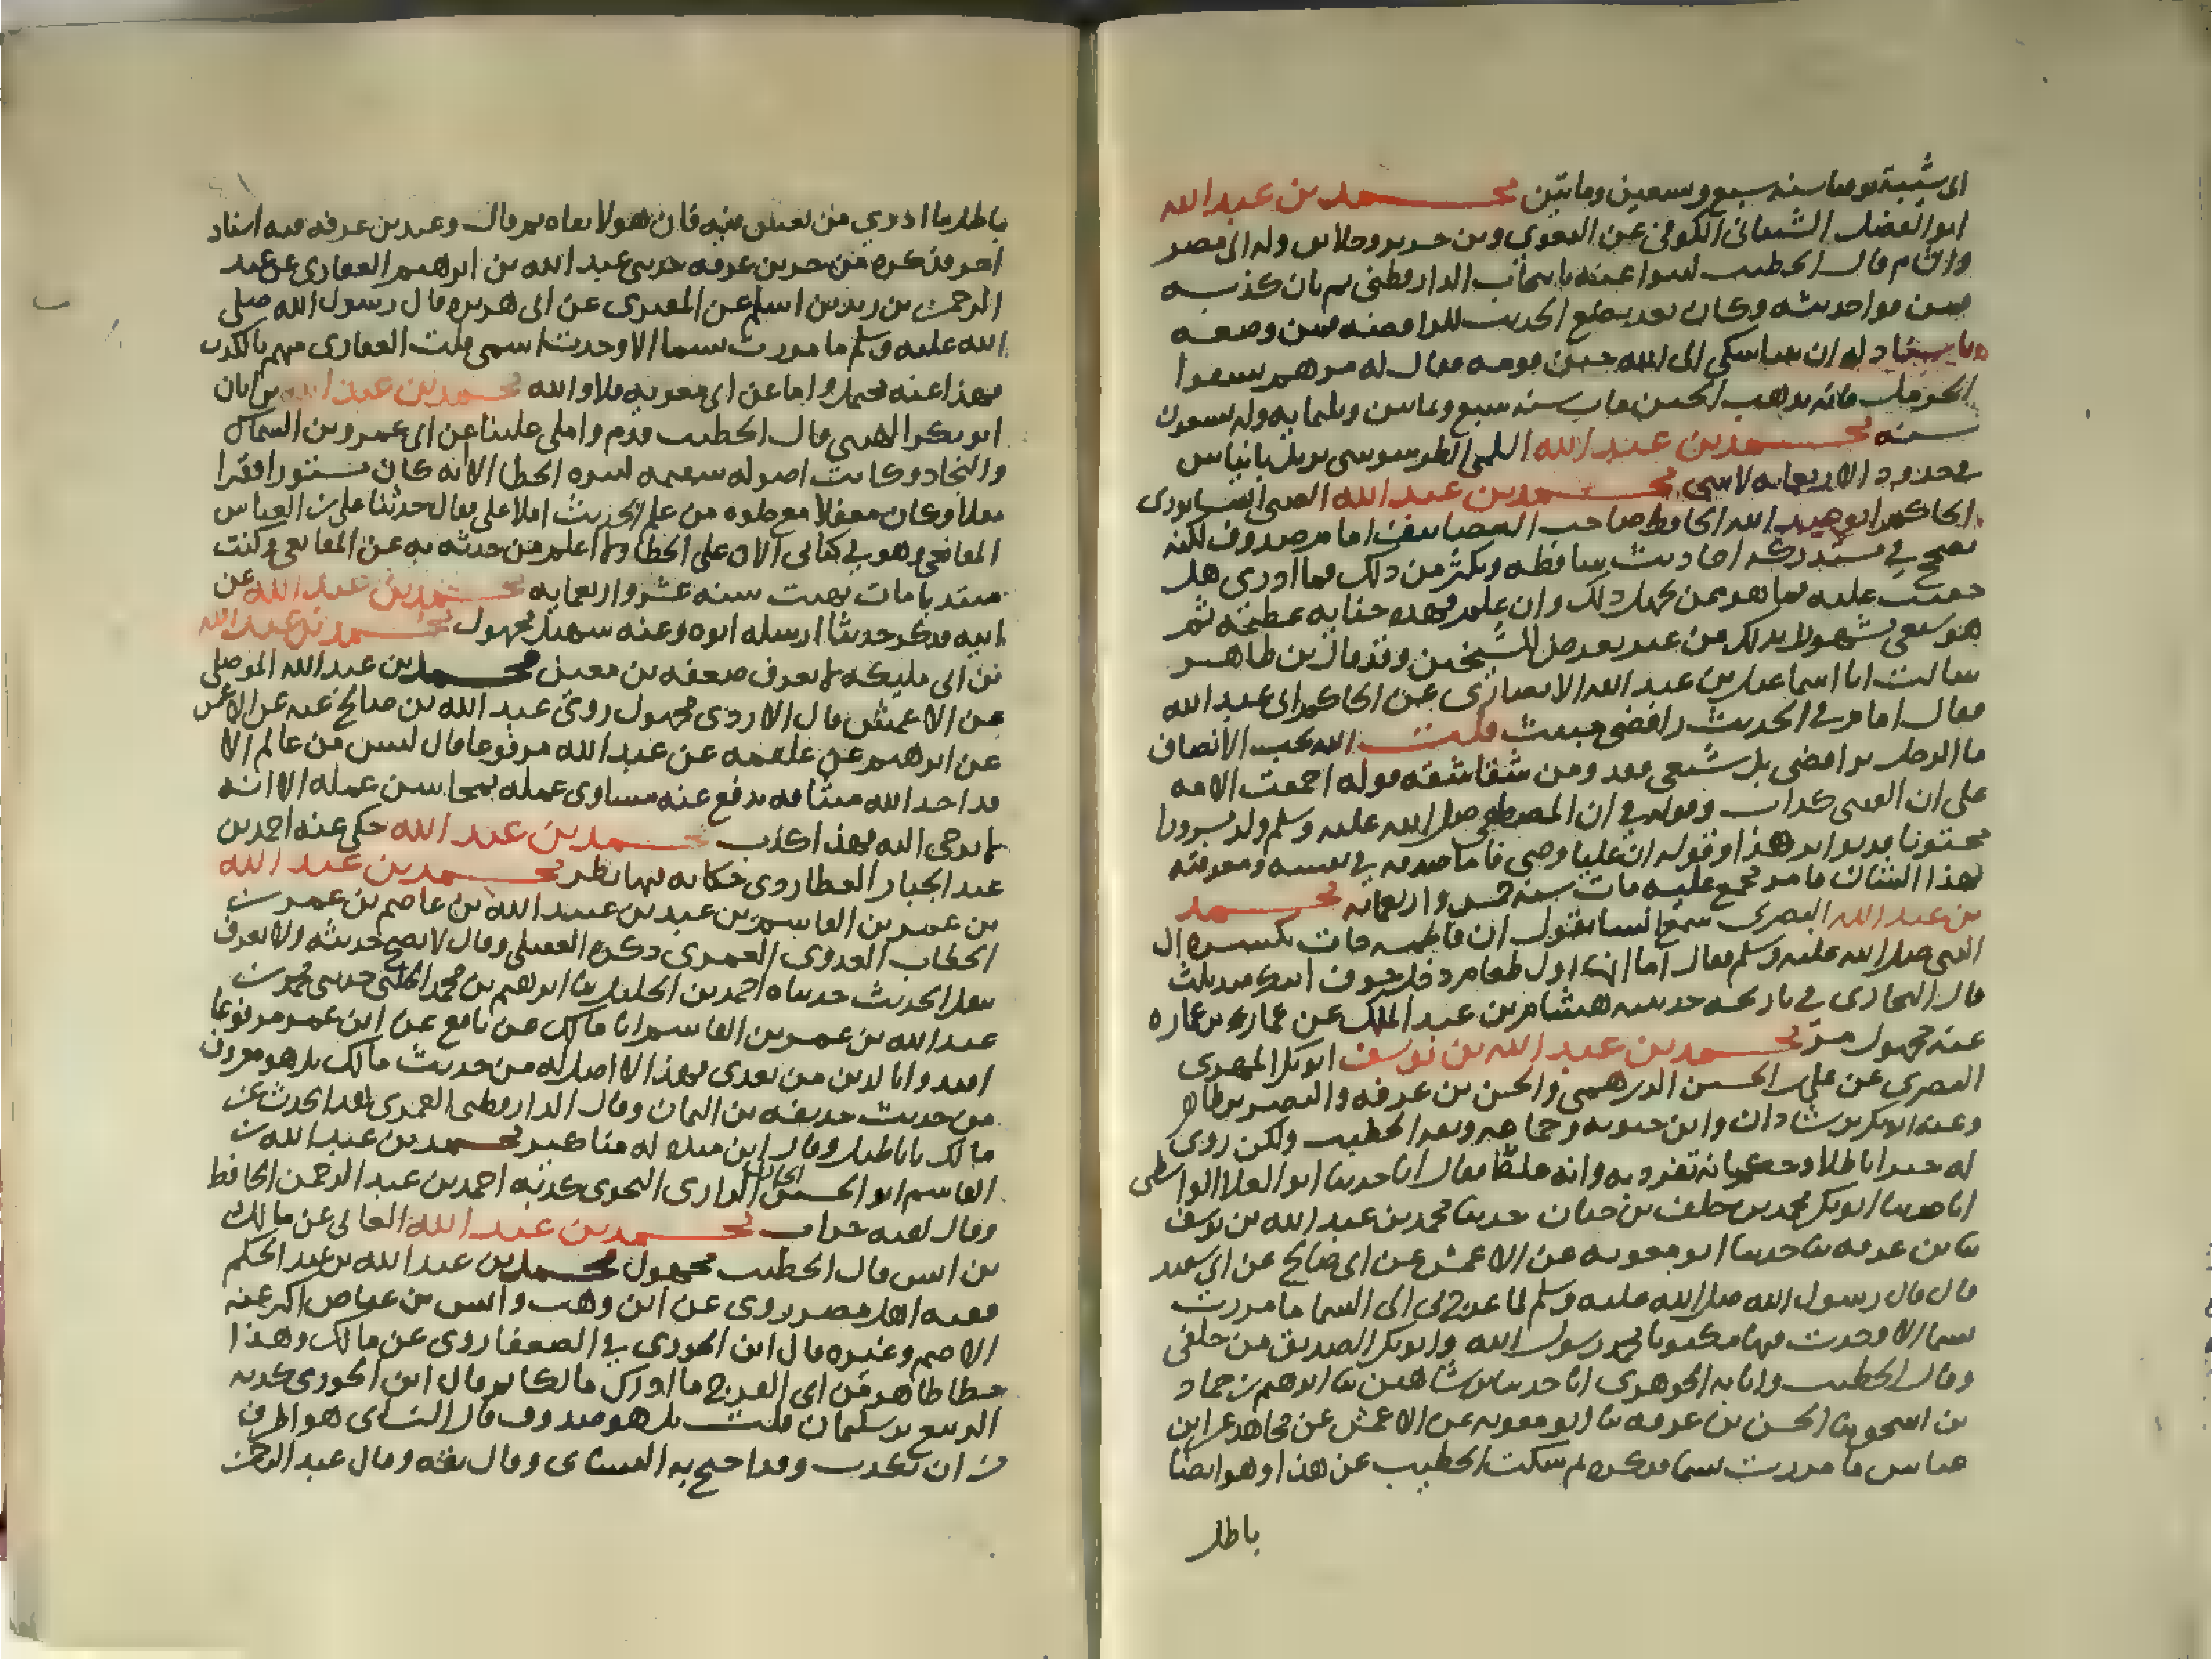 ابى شيبة توفيا سنه سبع وتسعين وماتين محمد بن عبد الله
ابو الفضل الشيبانى الكوفى عن البغوي وبن جرير وخلايق وله الى مصر
والشام قال الخطيب كتبوا عنه بانتخاب الدارقطنى ثم بان كذبه
فمزقوا حديثه وكان بعد يضع الحديث للرافضه قلت وضعه
ان نبيا شكى الى الله جبن قومه فقال له مرهم يستفوا
الحرمل فانه يذهب الجبن مات سنه سبع وثمانين وثلثمايه وله تسعون
سنه محمد بن عبد الله الطرسوسى نزيل بانياس
فى حدود الاربعمايه لا شى محمد بن عبد الله الضبى النيسابورى
الحاكم ابو عبد الله الحافظ صاحب التصانيف امام صدوق لكنه
يصحح في مستدركه احاديث ساقطه ويكثر من ذلك فما ادرى هل
خفيت عليه فما هو ممن يجهل ذلك وان علم فهذه خيانه عظيمه ثم
هو شيعى مشهور بذلك من غير تعرض للشيخين وقد قال بن طاهر
سالت ابا اسماعيل بن عبد الله الانصارى عن الحاكم ابى عبد الله
فقال امام في الحديث رافضى خبيث قلت الله يحب الانصاف
ما الرجل برافضى بل شيعى فقد ومن شقاشقه قوله اجمعت الامه
على ان القتبى كذاب وقوله في ان المصطفى صلى الله عليه وسلم ولد مسرورا
مختونا قد تواتر هذا وقوله ان عليا وصى فاما صدقه في نفسه ومعرفته
بهذا الشان فامر مجمع عليه مات سنه خمس واربعمايه محمد
بن عبد الله البصرى سمع انسا يقول ان فاطمه جات بكسره الى
النبى صلى الله عليه وسلم فقال اما انه اول طعام دخل جوف ابيك منذ ثلث
قال البخارى في تاريخه حدثنيه هشام بن عبد الملك عن عمار بن عماره
عنه مجهول مر محمد بن عبد الله بن يوسف ابو بكر المهرى
البصرى عن على بن الحسين الدرهمى والحسن بن عرفه والنضر بن طاهر
وعنه ابو بكر بن شاذان وابن حيويه وجماعه وثقه الخطيب ولكن روى
له خبرا باطلا وجد تفرد به وانه غلط فقال انا حدثنا ابو العلا الواسطى
انا حدثنا ابو بكر محمد بن خلف بن حيان حدثنا محمد بن عبد الله بن يوسف
ثنا بن عرفه ثنا حدثنا ابو معويه عن الاعمش عن ابى صالح عن ابى سعيد
قال قال رسول الله صلى الله عليه وسلم لما عرج بى الى السما ما مررت
بسما الا وجدت فيها مكتوبا محمد رسول الله وابو بكر الصديق من خلفى
وقال الخطيب وانا به الجوهرى انا حدثنا بن شاهين ثنا ابرهيم بن حماد
بن اسحق ثنا الحسن بن عرفه ثنا ابو معويه عن الاعمش عن مجاهد عن ابن
عباس ما مررت بسما فذكره لم سكت الخطيب عن هذا وهو ايضا
باطل
باطل ما ادري من يغش فيه فان هولا ثقاه ثم قال وعند بن عرفه فيه اسناد
اخر فذكره من حديث بن عرفه حدثنى عبد الله بن ابرهيم الغفارى عن عبد
الرحمن بن زيد بن اسلم عن المقبرى عن ابى هريره قال رسول الله صلى
الله عليه وسلم ما مررت بسما الا وجدت اسمى قلت الغفارى متهم بالكذب
فهذا عنه محتمل واما عن ابى معويه فلا والله محمد بن عبد الله بن ابان
ابو بكر الهيتى قال الخطيب قدم واملى علينا عن ابى عمرو بن السماك
والنجاد وكانت اصوله سقيمه كثيره الخطا الا انه كان مستورا فقيرا
مقلا وكان مغفلا مع خلوه من علم الحديث املا على يقال حدثنا على بن العباس
المقانعى وهو في كتابى الان على الخطا ولم اعلم من حدثه به عن المقانعى وكنت
مبتديا مات بهيت سنه عشر واربعمايه محمد بن عبد الله عن
ابيه فذكر حديثا ارسله ابوه وعنه سهيل مجهول محمد بن عبد الله
بن ابى مليكه لم يعرف ضعفه بن معين محمد بن عبد الله الموصلى
عن الاعمش قال الازدى مجهول روى عبد الله بن صالح عنه عن الاعمش
عن ابرهيم عن علقمه عن عبد الله مرفوعا قال ليس من عالم الا
قد اخذ الله ميثاقه يدفع عنه مساوى عمله بمحاسن عمله الا انه
لم يوحى اليه فهذا كذب محمد بن عبد الله حكى عنه احمد بن
عبد الجبار العطاردى حكايه فيها نظر محمد بن عبد الله
بن عمر بن القاسم بن عبد بن عبيد الله بن عاصم بن عمر بن
الخطاب العدوى العمرى ذكره العقيلى وقال لا يصح حديثه ولا يعرف
بنقل الحديث حدثناه احمد بن الخليل ثنا ابرهيم بن محمد الحلبى حدثنى محمد بن
عبد الله بن عمر بن القاسم انا مالك عن نافع عن ابن عمر مرفوعا
اقتدوا بالذين من بعدى فهذا لا اصل له من حديث مالك بل هو معروف
من حديث حذيفه بن اليمان وقال الدارقطنى العمرى هذا يحدث عن
مالك باباطيل وقال ابن منده له مناكير محمد بن عبد الله بن
القاسم ابو الحسين الرازى النحوى كذبه احمد بن عبد الرحمن الحافظ
وقال لقبه جراب محمد بن عبد الله العانى عن مالك
بن انس قال الخطيب مجهول محمد بن عبد الله بن عبد الحكم
فقيه اهل مصر روى عن ابن وهب وانس بن عياض اكثر عنه
الاصم وغيره قال ابن الجوزى في الضعفا روى عن مالك وهذا
خطا ظاهر من ابى الفرج ما ادرك مالكا ثم قال ابن الجوزى كذبه
الربيع بن سليمان قلت بل هو صدوق قال النساى هو اظرف
من ان يكذب وقد احتج به النساى وقال ثقه وقال عبد الرحمن